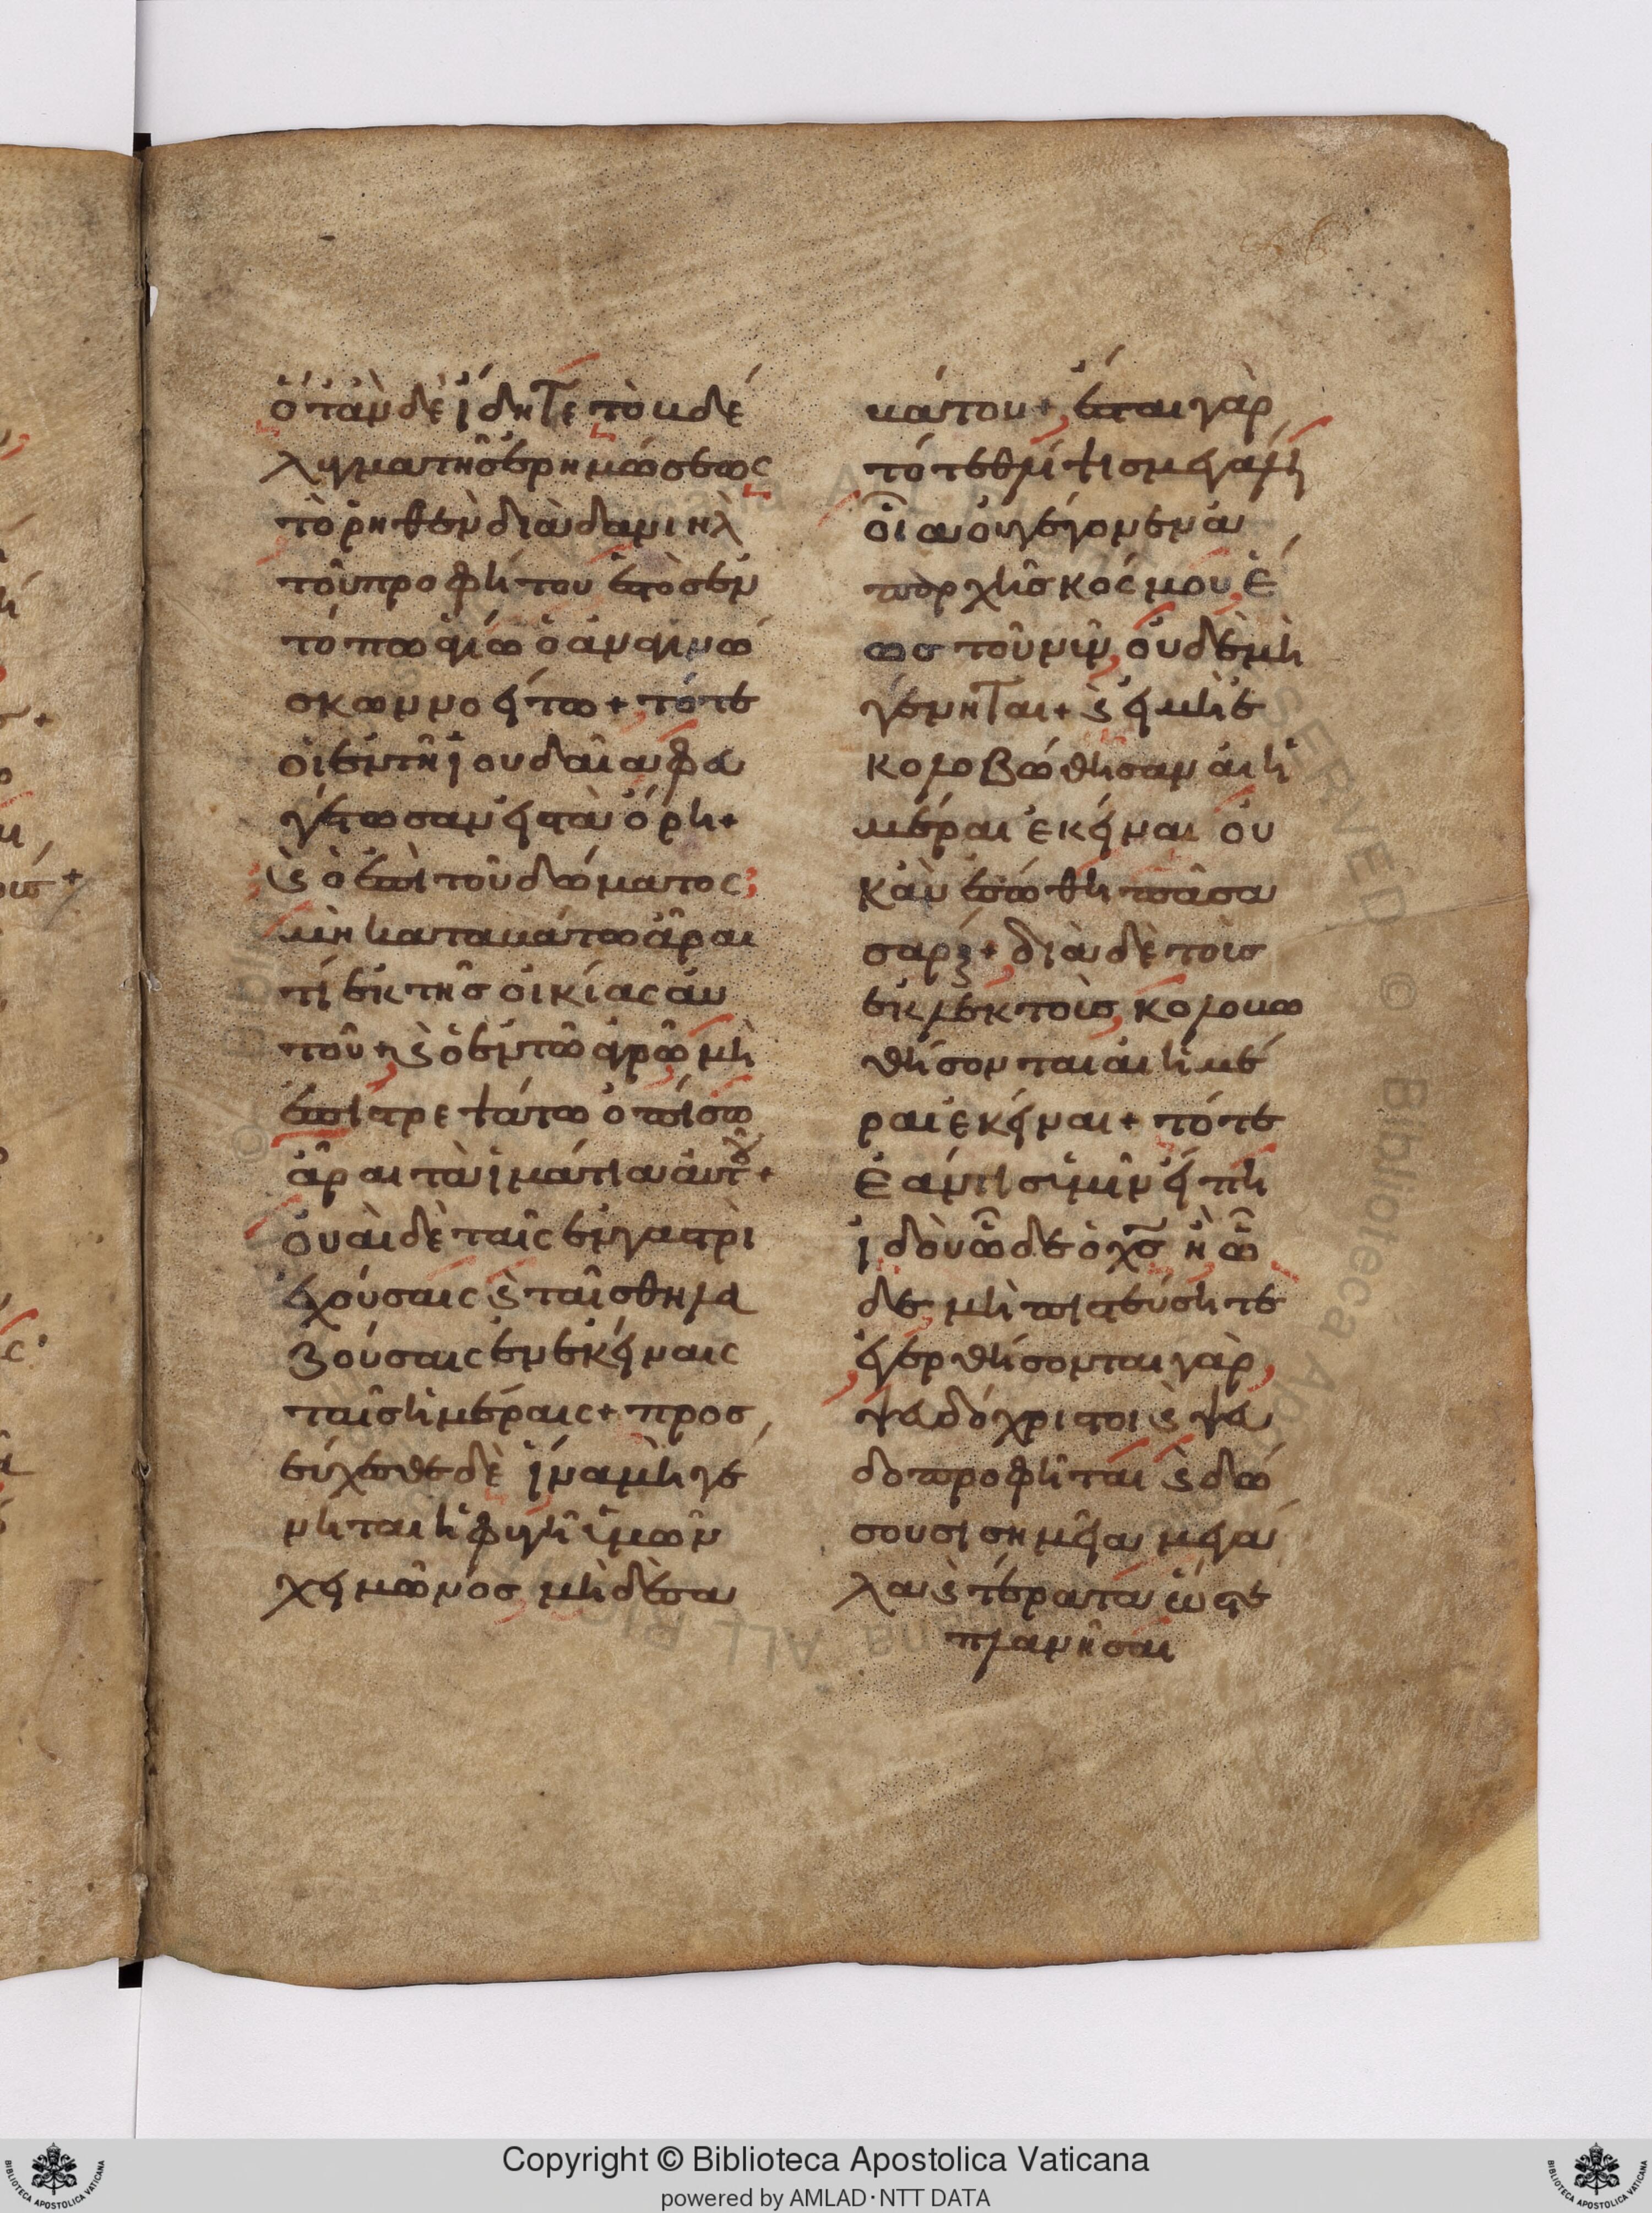 ὅταν δὲ ἴδητε τὸ βδέ
λυγμα τῆς ἐρημώσεως
τὸ ῥηθὲν διὰ δανιὴλ
τοῦ προφήτου ἐστὸς ἐν
τόπω ἁγίω ὁ ἀναγινώ
σκων νοείτω + τότε
οἱ ἐν τῆ ἰουδαία φευ
γέτωσαν εἰς τὰ ὄρη +
ϗ ὁ ἐπὶ τοῦ δώματος
μὴ καταβάτω ἆραι
τί ἐκ τῆς οἰκίας αὐ
τοῦ + ϗ ὁ ἐν τῶ ἀγρῶ μὴ
ἐπιστρεψάτω ὀπίσω
ἆραι τὰ ἱμάτια αὐτοῦ +
οὐαὶ δὲ ταῖς ἐν γαστρὶ
ἐχούσαις ϗ ταῖς θηλα
ζούσαις ἐν ἐκείναις
ταῖς ἡμέραις + προσ
εύχεσθε δὲ ἵνα μὴ γέ
νηται ἡ φυγὴ ὑμῶν
χειμῶνος μὴ δὲ σα
βάτου + ἔσται γὰρ
τότε θλίψις μεγάλη
οἵα οὐ γέγονεν ἀ
π' ἀρχῆς κόσμου ἕ
ως τοῦ νῦν οὐδὲ μὴ
γένηται + ϗ εἰ μὴ ἐ
κολοβώθησαν αἱ ἡ
μέραι ἐκεῖναι οὐ
κ ἂν ἐσώθη πᾶσα
σάρξ + διὰ δὲ τοὺς
ἐκλεκτοὺς κολοβω
θήσονται αἱ ἡμέ
ραι ἐκεῖναι + τότε
ἐάν τις ὑμῖν εἴπη
ἰδοὺ ὧδε ὁ χς ἢ ὧ
δε μὴ πιστεύσητε
ἐγερθήσονται γὰρ
ψευδόχριστοι ϗ ψευ
δοπροφῆται ϗ δώ
σουσι σημεῖα μεγά
λα ϗ τέρατα ὥστε
πλανῆσαι
Copyright © Biblioteca Apostolica Vaticana
powered by AMLAD·NTT DATA